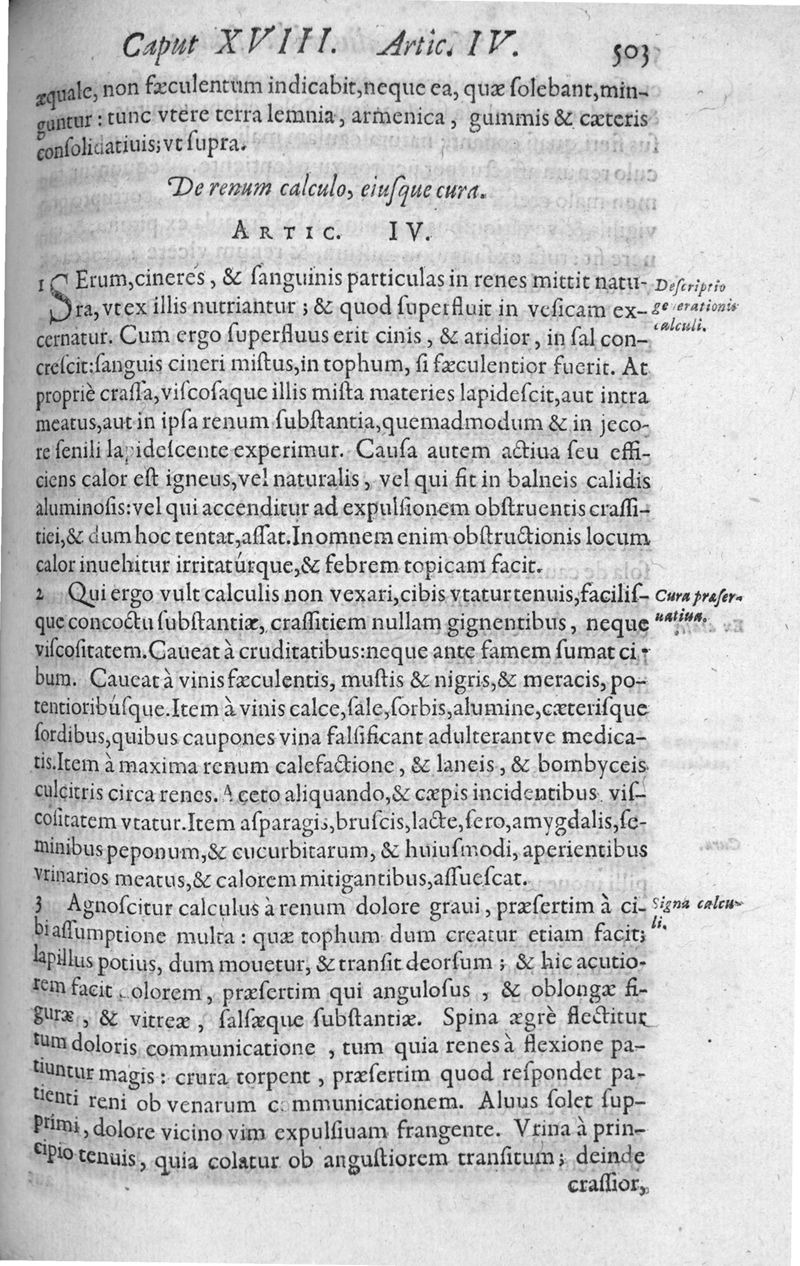 Caput XVIII. Artic. IV. 503
æquale, non fæculentum indicabit,neque ea, quæ ſolebant,min-
guntur : tunc vtere terra lemnia, armenica, gummis & cæteris
conſolidatiuis; vt ſupra.
De renum calculo, eiuſque cura.
ARTIC. IV.
1 SErum,cineres, & ſanguinis particulas in renes mittit natu- Deſcriptio
ra,vt ex illis nutriantur ; & quod ſuperfluit in veſicam ex- generationis
cernatur. Cum ergo ſuperfluus erit cinis, & aridior, in ſal con- calculi.
creſcit:ſanguis cineri miſtus,in tophum, ſi fæculentior fuerit. At
propriè craſſa,viſcoſaque illis miſta materies lapideſcit,aut intra
meatus,aut in ipſa renum ſubſtantia,quemadmodum & in jeco-
re ſenili lapideſcente experimur. Cauſa autem actiua ſeu effi-
ciens calor eſt igneus,vel naturalis, vel qui fit in balneis calidis
aluminoſis:vel qui accenditur ad expulſionem obſtruentis craſſi-
tiei,& dum hoc tentat,aſſat.In omnem enim obſtructionis locum
calor inuehitur irritatúrque,& febrem topicam facit.
2 Qui ergo vult calculis non vexari,cibis vtatur tenuis,faciliſ- Cura præſer-
que concoctu ſubſtantiæ, craſſitiem nullam gignentibus, neque uatiua.
viſcoſitatem.Caueat à cruditatibus:neque ante famem ſumat ci-
bum. Caueat à vinis fæculentis, muſtis & nigris,& meracis, po-
tentioribúſque.Item à vinis calce,ſale,ſorbis,alumine,cæteriſque
ſordibus,quibus caupones vina falſificant adulterantve medica-
tis.Item à maxima renum calefactione, & laneis, & bombyceis
culcitris circa renes. Aceto aliquando,& cæpis incidentibus viſ-
coſitatem vtatur.Item aſparagis,bruſcis,lacte,ſero,amygdalis,ſe-
minibus peponum,& cucurbitarum, & huiuſmodi, aperientibus
vrinarios meatus,& calorem mitigantibus,aſſueſcat.
3 Agnoſcitur calculus à renum dolore graui, præſertim à ci- Signa calcu-
bi aſſumptione multa : quæ tophum dum creatur etiam facit; li.
lapillus potius, dum mouetur, & tranſit deorſum ; & hic acutio-
rem facit dolorem, præſertim qui anguloſus , & oblongæ fi-
guræ , & vitreæ , ſalſæque ſubſtantiæ. Spina ægrè flectitur
tum doloris communicatione , tum quia renes à flexione pa-
tiuntur magis : crura torpent , præſertim quod reſpondet pa-
tienti reni ob venarum communicationem. Aluus ſolet ſup-
primi, dolore vicino vim expulſiuam frangente. Vrina à prin-
cipio tenuis, quia colatur ob anguſtiorem tranſitum ; deinde
craſſior,